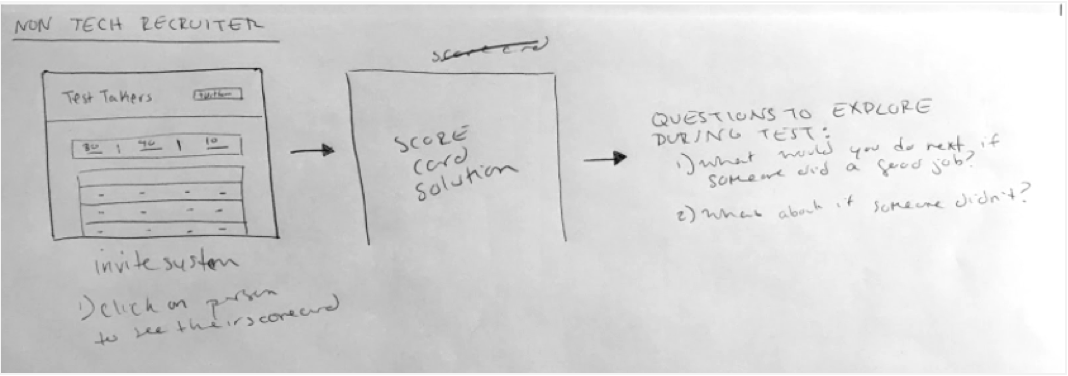 NON TECH RECRUITER
Test Takers
30 | 40 | 10
invite system
1) click on person
to see their scorecard
score card
SCORE
card
solution
QUESTIONS TO EXPLORE
DURING TEST:
1) What would you do next if
someone did a good job?
2) What about if someone didn't?